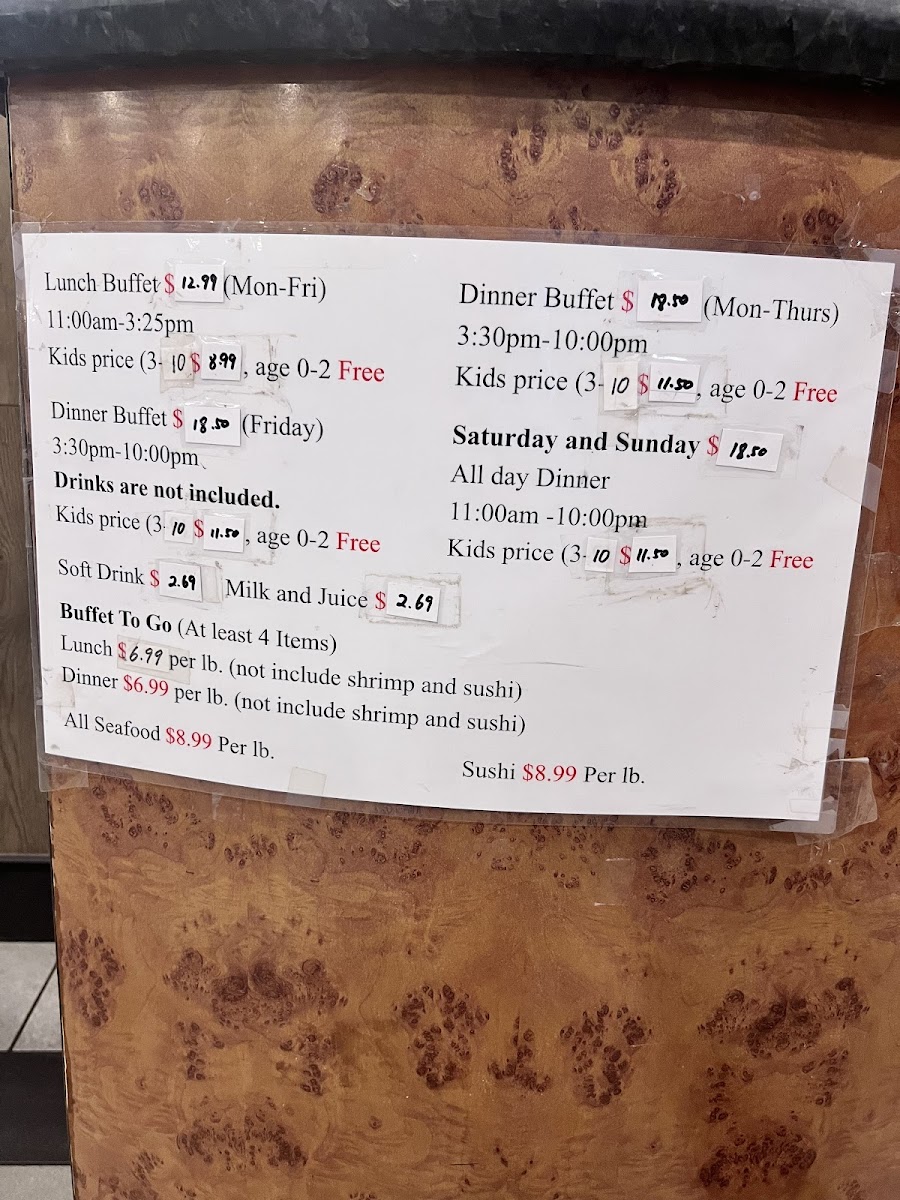 Lunch Buffet $ 12.99 (Mon-Fri)
11:00am-3:25pm
Kids price (3- 10 $ 8.99 , age 0-2 Free
Dinner Buffet $ 18.50 (Friday)
3:30pm-10:00pm
Drinks are not included.
Kids price (3- 10 $ 11.50 , age 0-2 Free
Soft Drink $ 2.69 Milk and Juice $ 2.69
Buffet To Go (At least 4 Items)
Lunch $6.99 per lb. (not include shrimp and sushi)
Dinner $6.99 per lb. (not include shrimp and sushi)
All Seafood $8.99 Per lb.
Dinner Buffet $ 18.50 (Mon-Thurs)
3:30pm-10:00pm
Kids price (3- 10 $ 11.50 , age 0-2 Free
Saturday and Sunday $ 18.50
All day Dinner
11:00am -10:00pm
Kids price (3- 10 $ 11.50 , age 0-2 Free
Sushi $8.99 Per lb.